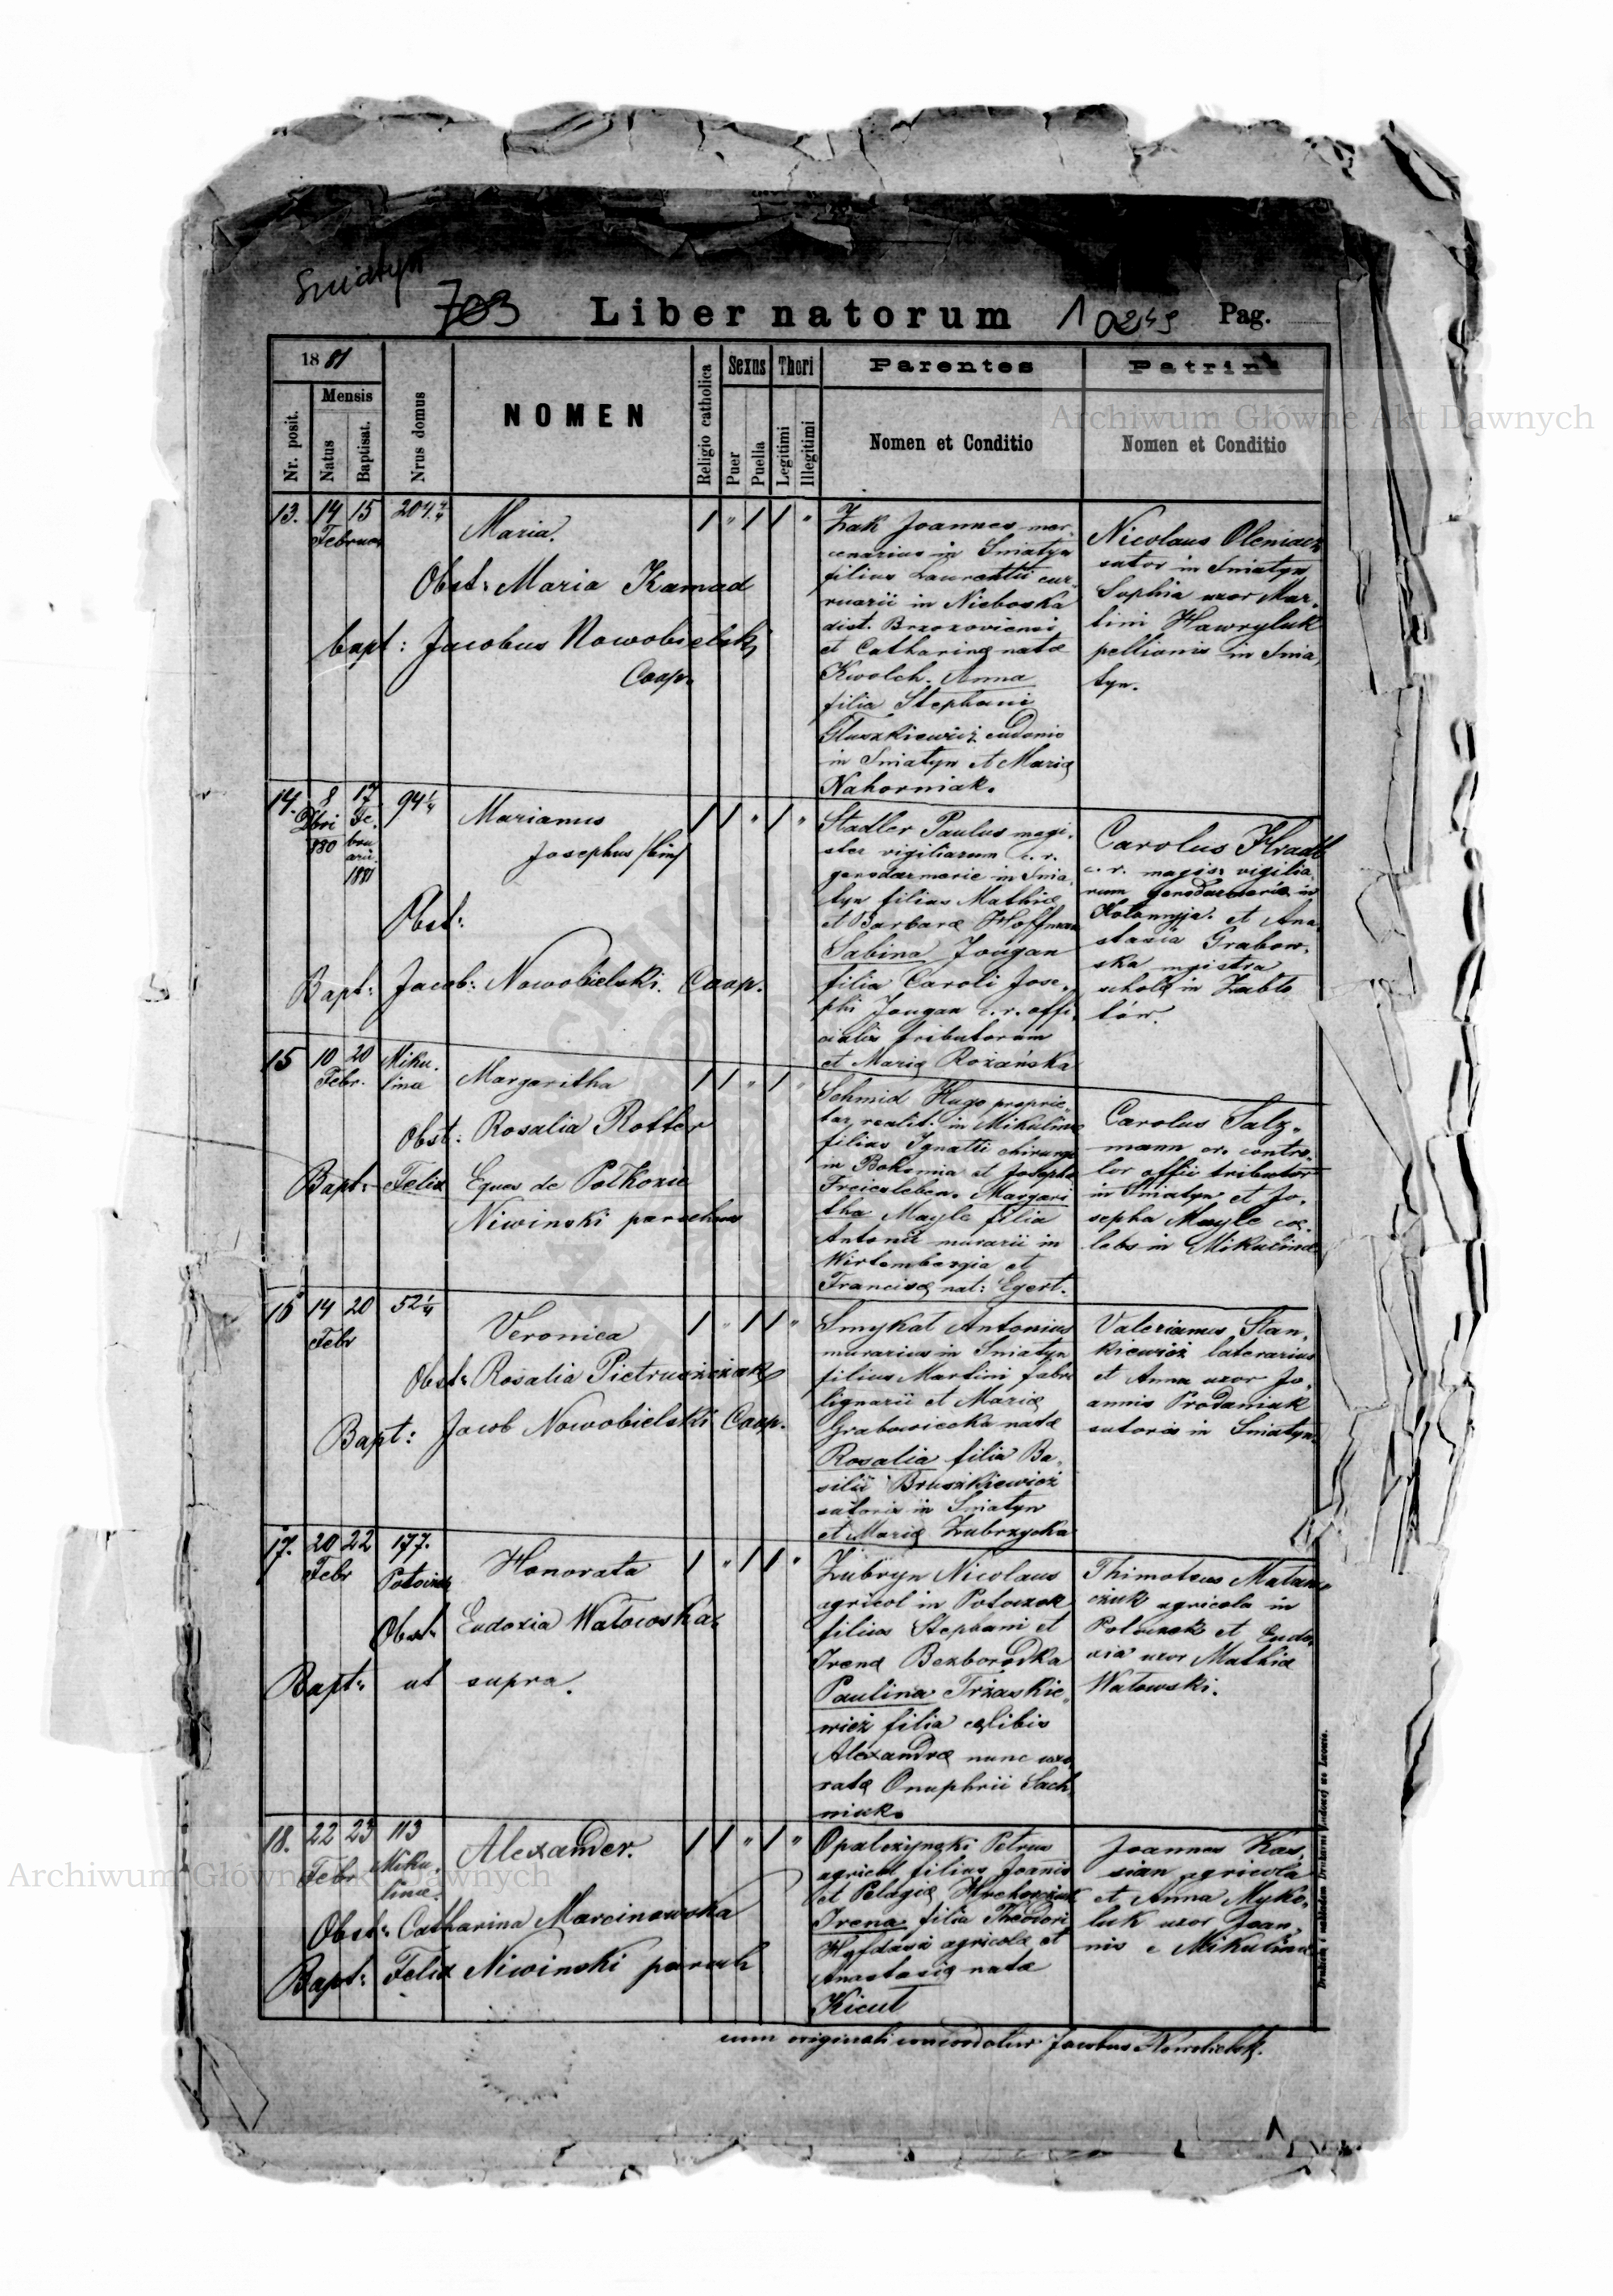 Sniatyn
703 Liber natorum 10249 Pag.
1881
Nr. posit.
Mensis
Natus
Baptisat.
Nrus domus
NOMEN
Religio catholica
Sexus
Puer
Puella
Thori
Legitimi
Illegitimi
Parentes
Nomen et Conditio
Patrini
Nomen et Conditio
13. 14 15 Februar 204
Maria.
Obst: Maria Kamad
bapt: Jacobus Nowobielski
Coop.
1 " 1 1 "
Żak Joannes mer-
cenarius in Sniatyn
filius Laurentii cur-
ruarii in Nieboska
dist. Brzozoviensi
et Catharinæ natæ
Kwolch. Anna
filia Stephani
Głuszkiewicz cudonis
in Sniatyn et Mariæ
Nahorniak.
Nicolaus Oleniacz
sutor in Sniatyn
Sophia uxor Mar-
tini Hawryluk
pellionis in Snia
tyn.
14. 8 17
Xbri Fe-
880 bru
arii
1881
94 1/4
Marianus
Josephus /bin/
Obst:
Bapt: Jacob: Nowobielski. Coop.
1 1 " 1 "
Stadler Paulus magi-
ster vigiliarum c. r.
gensdarmerie in Snia-
tyn filius Mathiæ
et Barbaræ Hoffman
Sabina Jougan
filia Caroli Jose-
phi Jougan c. r. offi-
cialis tributorum
et Mariæ Rożańska
Carolus Hradl
c. r. magis: vigilia-
rum gensdarmeriæ in
Kołomyja. et Ana
stasia Grabow-
ska magistra
scholæ in Zabło
tów.
15 10 20 Febr. Miku-
linæ
Margaritha
Obst: Rosalia Rotter
Bapt: Felix Eques de Połkozie
Niwinski parochus
1 1 " 1 "
Schmid Hugo proprie-
tar. realit. in Mikulince
filius Ignatii chirurgi
in Bohemia et Josephæ
Freiesleben. Margari
tha Mayle filia
Antonii murarii in
Wirtembergia et
Franciscæ nat: Egert.
Carolus Salz-
mann cr. contro-
lor offii tributor
in Sniatyn et Jo-
sepha Mayle cæ-
lebs in Mikulince
16 14 20 Febr 52 1/4
Veronica
Obst: Rosalia Pietruszczak
Bapt: Jacob Nowobielski Coop.
1 " 1 1 "
Smykal Antonius
murarius in Sniatyn
filius Martini fabri
lignarii et Mariæ
Grabowiecka natæ
Rosalia filia Ba-
silii Bruszkiewicz
sutoris in Sniatyn
et Mariæ Zubrzycka
Valerianus Stan-
kiewicz laterarius
et Anna uxor Jo-
annis Prodaniuk
sutoris in Sniatyn.
17. 20 22 Febr 177.
Potoczek
Honorata
Obst: Eudoxia Watowska
Bapt: ut supra.
1 " 1 1 "
Zubryn Nicolaus
agricol in Potoczek
filius Stephani et
Irenæ Bezborodka
Paulina Trzaskie-
wicz filia cælibis
Alexandræ nunc uxo
ratæ Onuphrii Sach
niuk.
Thimoteus Matan
czuk agricola in
Potoczek et Eudo-
xia uxor Mathiæ
Watowski.
18. 22 23 Febr 113
Miku-
lince.
Alexander.
Obst: Catharina Marcinowska
Bapt: Felix Niwinski paroch
1 1 " 1 "
Opalczynski Petrus
agricol filius Joannis
et Pelagiæ
Irena filia Theodori
agricolæ et
Anastasiæ natæ
Kicul
Joannes Kas-
sian agricola
et Anna Myko-
luk uxor Joan-
nis e Mikulince
cum originali concordatur Jacobus Nowobielski.
Drukiem i nakładem Drukarni Ludowej we Lwowie.
Archiwum Główne Akt Dawnych
Archiwum Główne Akt Dawnych